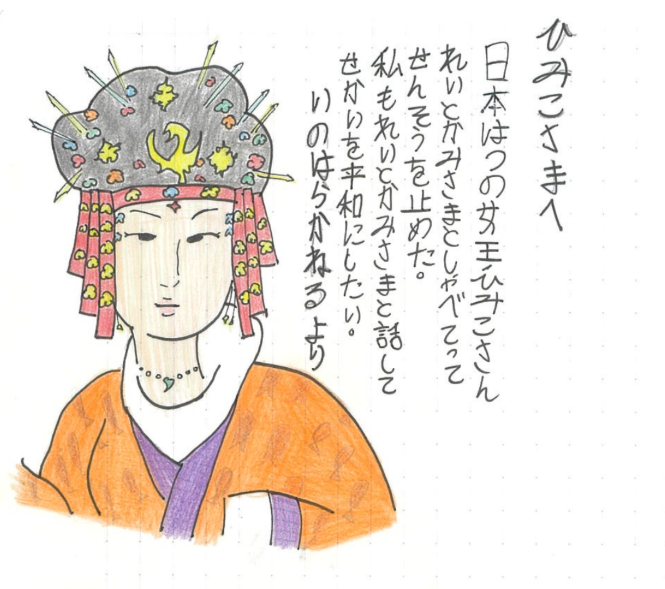 ひみこさまへ
日本はつの女王ひみこさん
れいとかみさまとしゃべてって
せんそうを止めた。
私もれいとかみさまと話して
せかいを平和にしたい。
いのはらかねるより